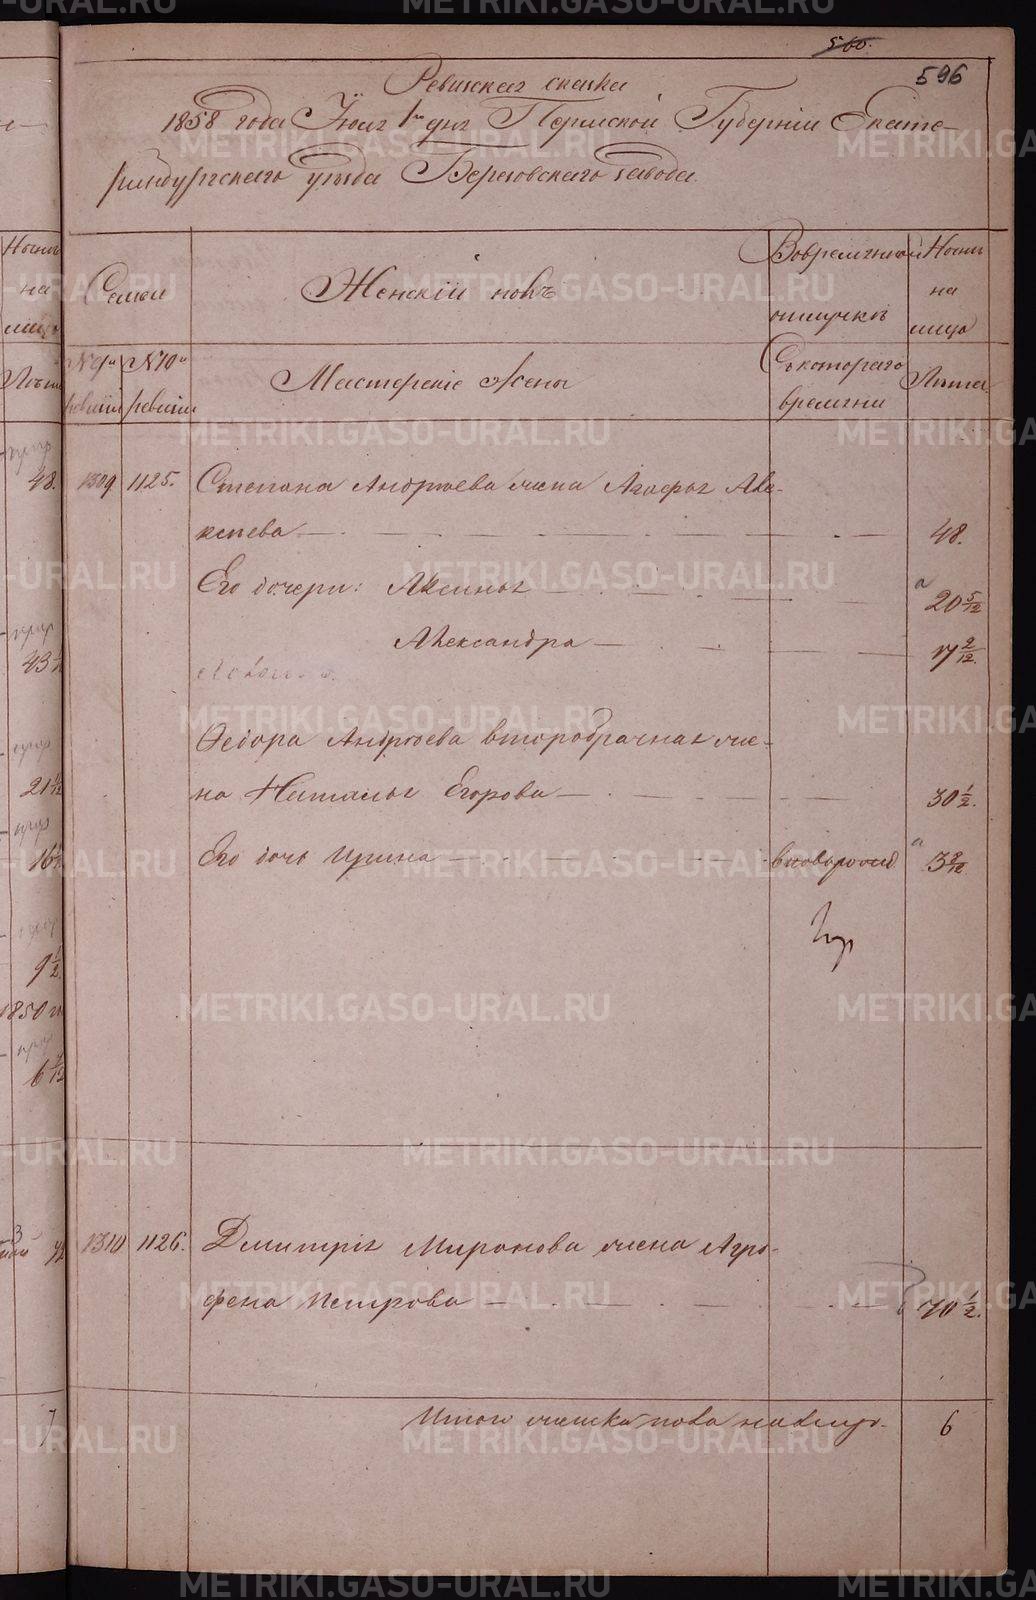 560.
596
Ревизская сказка
1858 года Июля 1го дня Пермской Губерніи Екате-
ринбургскаго уѣзда Березовскаго завода.
Семьи
Женскій полъ
Во временной отлучкѣ
Ныне на лицо
№ 9й ревизіи
№ 10й ревизіи
Мастерскіе Жены
Съ котораго времени
Лѣта
1309 1125. Степана Андреева жена Агафья Але-
ксеева 48.
Его дочери: Аксинья 20 5/12
Александра 17 2/12.
Ѳедора Андреева второбрачная же-
на Наталья Егорова 30 1/2.
Его дочь Ирина вновьрожд 3 2/12
1310 1126. Дмитрія Миронова жена Агро-
фена Петрова 70 1/2.
Итого женска пола на лицо. 6
48.
43
21
16
9 1/2
1850
6
METRIKI.GASO-URAL.RU